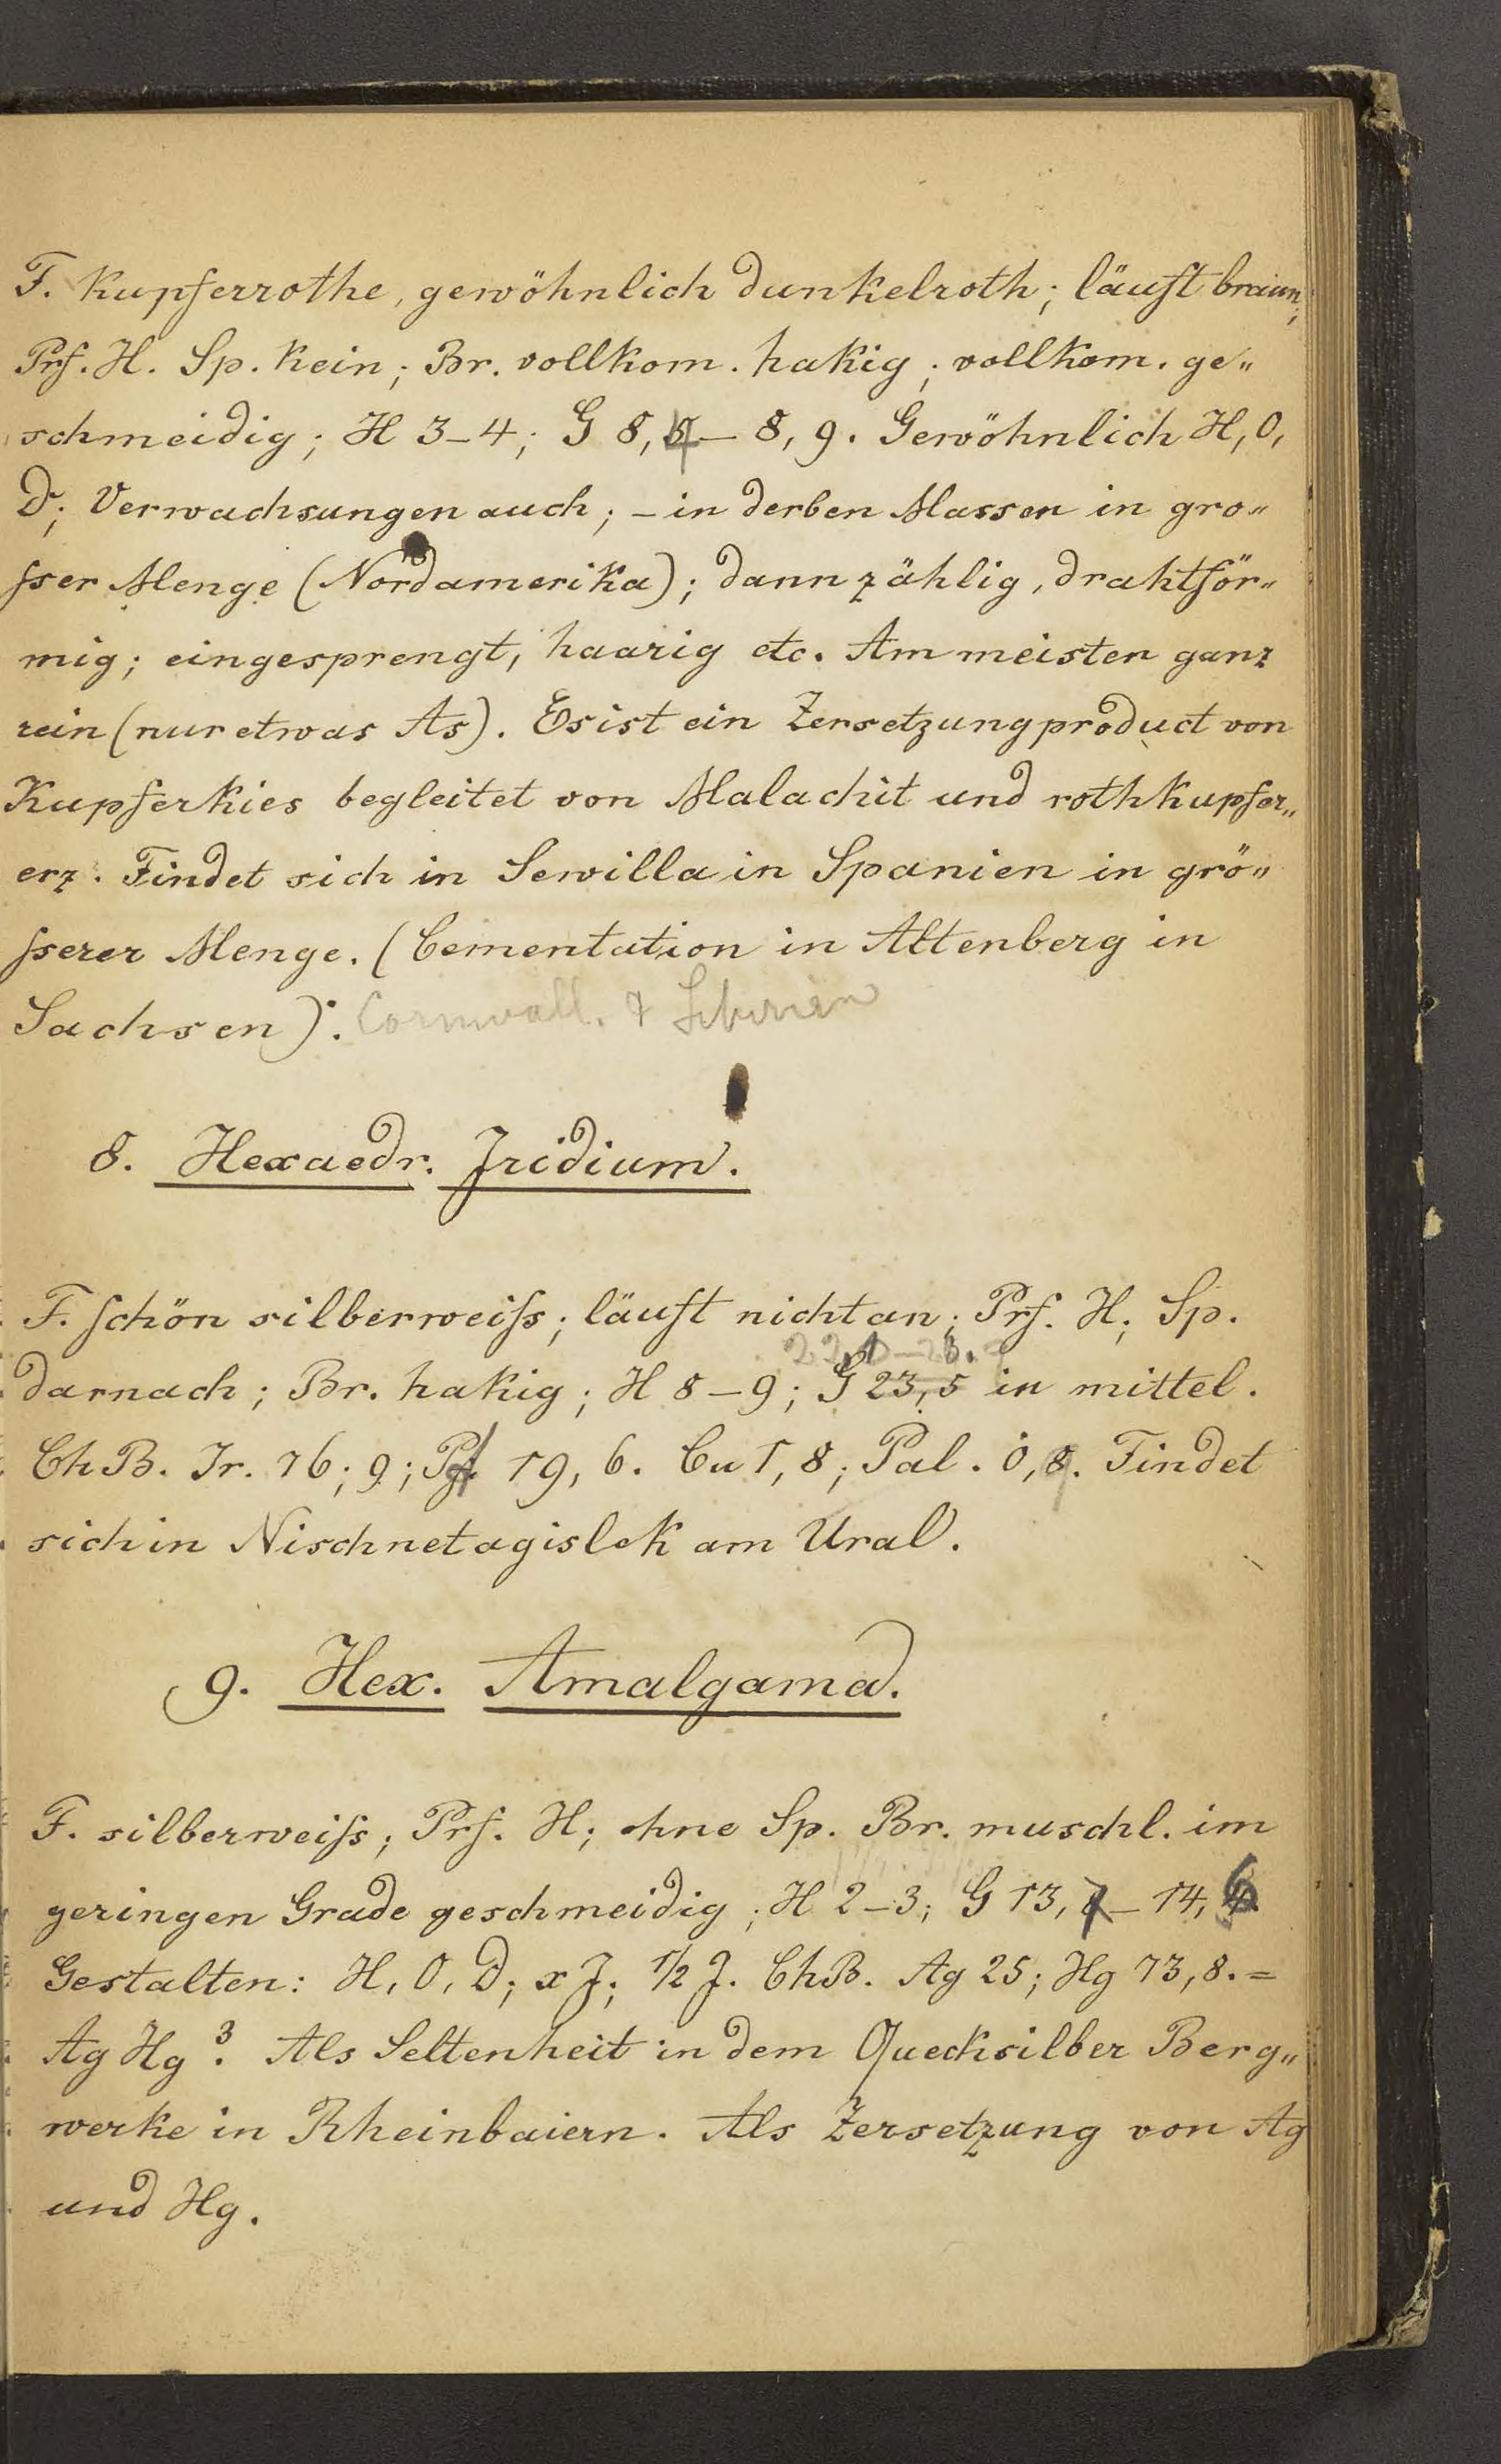 F. Kupferrothe, gewöhnlich dunkelroth; läuft braun;
Prf. H. Sp. Kein; Br. vollkom. hakig; vollkom. ge„
schmeidig; H 3–4; G 8,4 – 8,9. Gewöhnlich H, O,
D; Verwachsungen auch; – in derben Massen in gro„
sser Menge (Nordamerika); dann zählig, drahtför„
mig; eingesprengt, haarig etc. Am meisten ganz
rein (nur etwas As). Es ist ein Zersetzungproduct von
Kupferkies begleitet von Malachit und rothkupfer„
erz. Findet sich in Sewilla in Spanien in grö„
sserer Menge. (Cementation in Altenberg in
Sachsen). Cornwall. & Siberien
8. Hexaedr. Jridium.
F. schön silberweiss; läuft nicht an; Prf. H; Sp.
darnach; Br. hakig; H 8–9; G 23,5 in mittel.
ChB. Jr. 76; 9; Pt 19, 6. Cu 1, 8; Pal. 0, 9. Findet
sich in Nischnetagislek am Ural.
9. Hex. Amalgama.
F. silberweiss; Prf. H; ohne Sp. Br. muschl. im
geringen Grade geschmeidig; H 2–3; G 13,7 – 14,6
Gestalten: H, O, D; x J; 1/2 J. ChB. Ag 25; Hg 73,8. =
Ag Hg³. Als Seltenheit in dem Quecksilber Berg„
werke in Rheinbaiern. Als Zersetzung von Ag
und Hg.